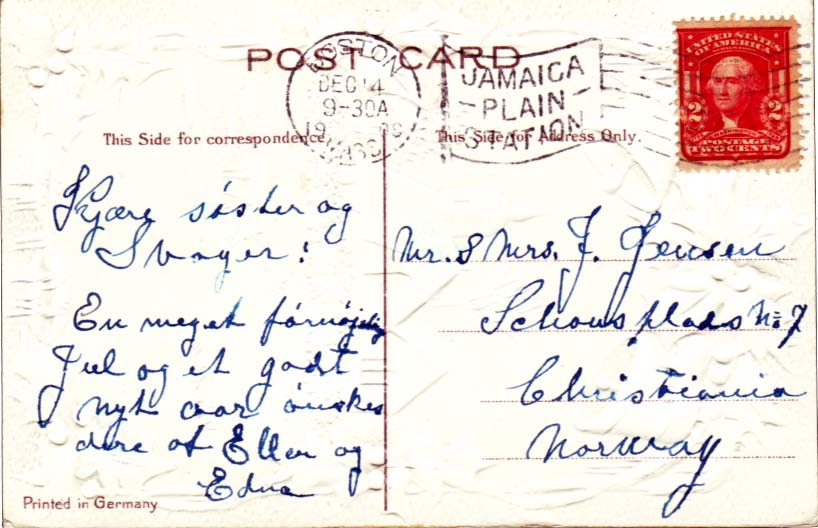 POST CARD
BOSTON
DEC 14
9-30A
19 08
MASS
JAMAICA
PLAIN
STATION
UNITED STATES
OF AMERICA
2 2
WASHINGTON
POSTAGE
TWO CENTS
This Side for correspondence.
This Side for Address Only.
Kjære søster og
Svoger!
En meget førnøjelig
Jul og et godt
nyt aar ønskes
dere af Ellen og
Edna
Mr. & Mrs. J. Jensen
Schous plads No 7
Christiania
Norway
Printed in Germany